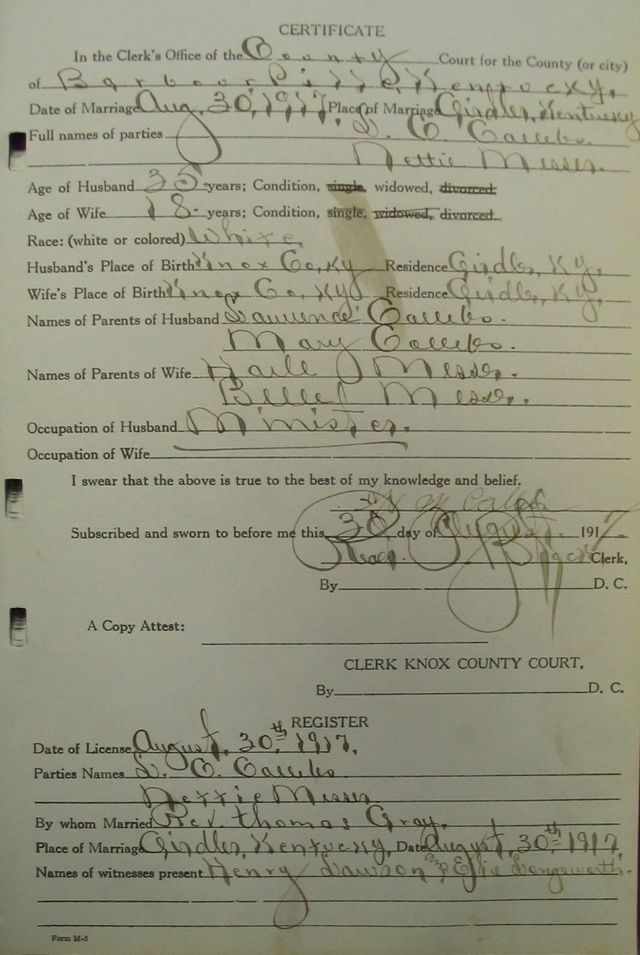 CERTIFICATE
In the Clerk's Office of the County Court for the County (or city)
of Barbourville, Kentucky.
Date of Marriage Aug. 30, 1917. Place of Marriage Girdler, Kentucky
Full names of parties
Nettie Messer.
Age of Husband 35 years; Condition, single, widowed, divorced
Age of Wife 18 years; Condition, single, widowed, divorced.
Race: (white or colored) White
Husband's Place of Birth Knox Co, Ky Residence Girdler, Ky.
Wife's Place of Birth Knox Co, Ky Residence Girdler, Ky.
Names of Parents of Husband
Mary
Names of Parents of Wife Messer.
Messer.
Occupation of Husband Minister.
Occupation of Wife
I swear that the above is true to the best of my knowledge and belief.
Subscribed and sworn to before me this 30 day of August 1917.
Clerk,
By D. C.
A Copy Attest:
CLERK KNOX COUNTY COURT,
By D. C.
REGISTER
Date of License August, 30th 1917,
Parties Names
Nettie Messer
By whom Married Rev. Thomas Gray.
Place of Marriage Girdler, Kentucky, Date August, 30th 1917
Names of witnesses present Henry Lawson and Effie Longsworth.
Form M-3